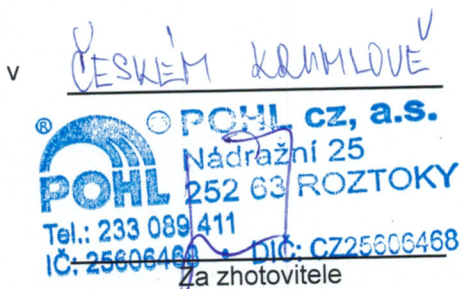 v ČESKÉM KRUMLOVĚ
® POHL cz, a.s.
Nádražní 25
POHL 252 63 ROZTOKY
Tel.: 233 089 411
IČ: 25606468 • DIČ: CZ25606468
Za zhotovitele